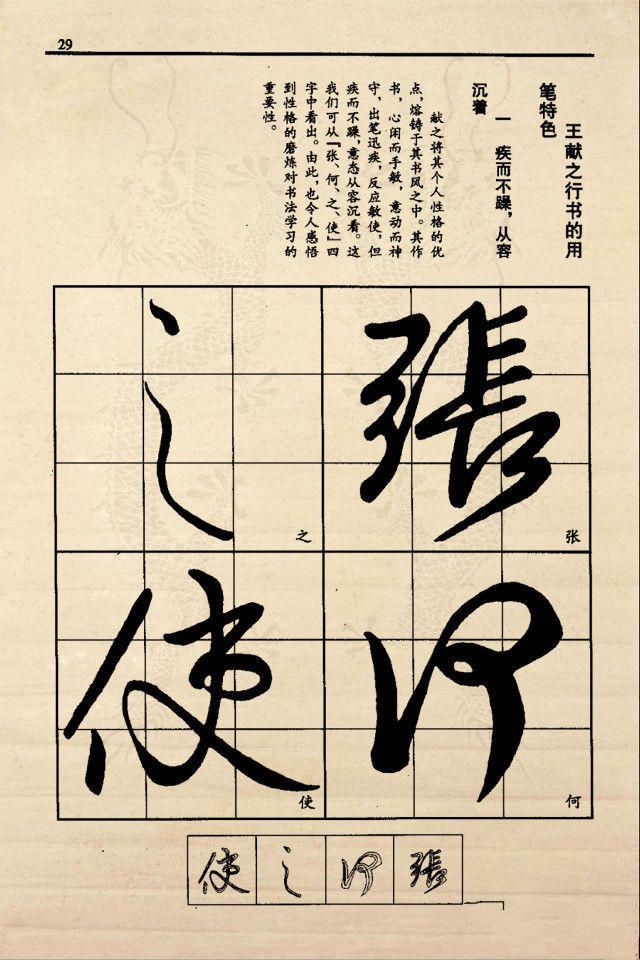 29
王献之行书的用
笔特色
一 疾而不躁，从容
沉着
献之将其个人性格的优
点，熔铸于其书风之中。其作
书，心闲而手敏，意动而神
守，出笔迅疾，反应敏使，但
疾而不躁，意态从容沉着。这
我们可从『张、何、之、使』四
字中看出。由此，也令人感悟
到性格的磨炼对书法学习的
重要性。
張
张
何
何
之
之
使
使
張何之使